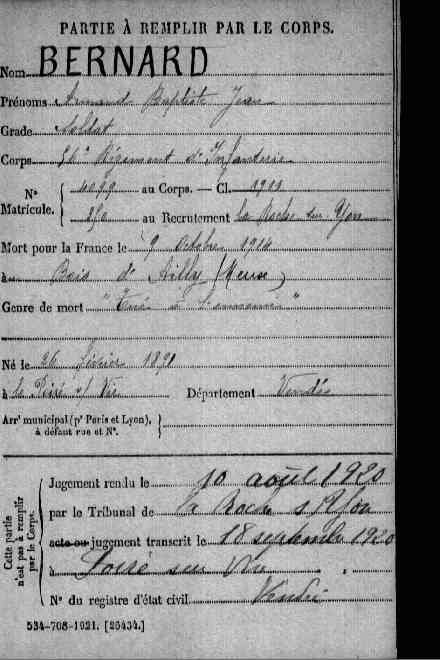 PARTIE À REMPLIR PAR LE CORPS.
Nom BERNARD
Prénoms Armand Baptiste Jean
Grade Soldat
Corps 56e Régiment d'Infanterie
N° Matricule. { 4099 au Corps. — Cl. 1911
au Recrutement la Roche sur Yon
Mort pour la France le 9 octobre 1914
à Bois d'Ailly (Meuse)
Genre de mort "Tué à l'ennemi"
Né le 26 février 1891
à le Poiré s/ Vie Département Vendée
Arrt municipal (pr Paris et Lyon), à défaut rue et N°. }
Cette partie n'est pas à remplir par le Corps.
Jugement rendu le 10 août 1920
par le Tribunal de la Roche s/Yon
acte ou jugement transcrit le 18 septembre 1920
à Poiré sur Vie
N° du registre d'état civil Vendée
534-708-1921. [26434.]